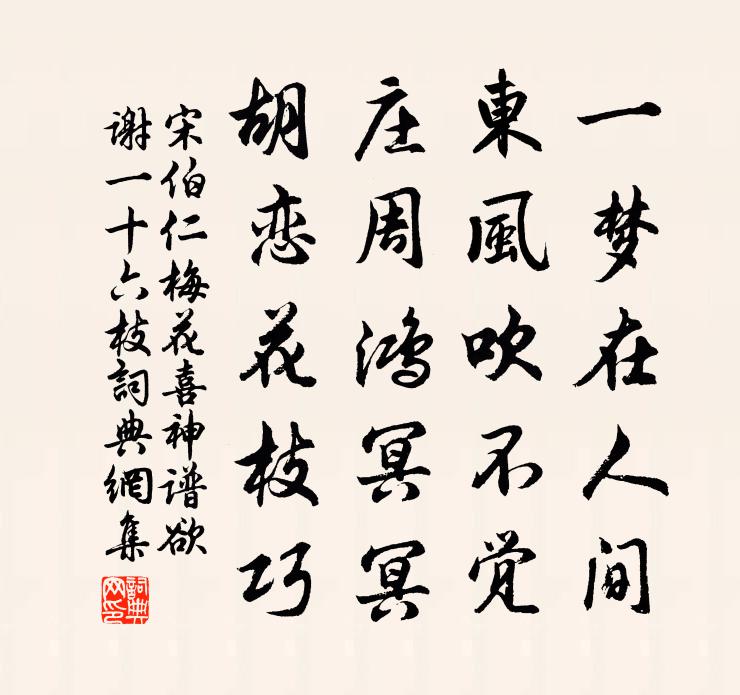 一梦在人间
東風吹不觉
庄周鸿冥冥
胡恋花枝巧
宋伯仁梅花喜神谱欲
谢一十六枝詞典網集
詞典网印